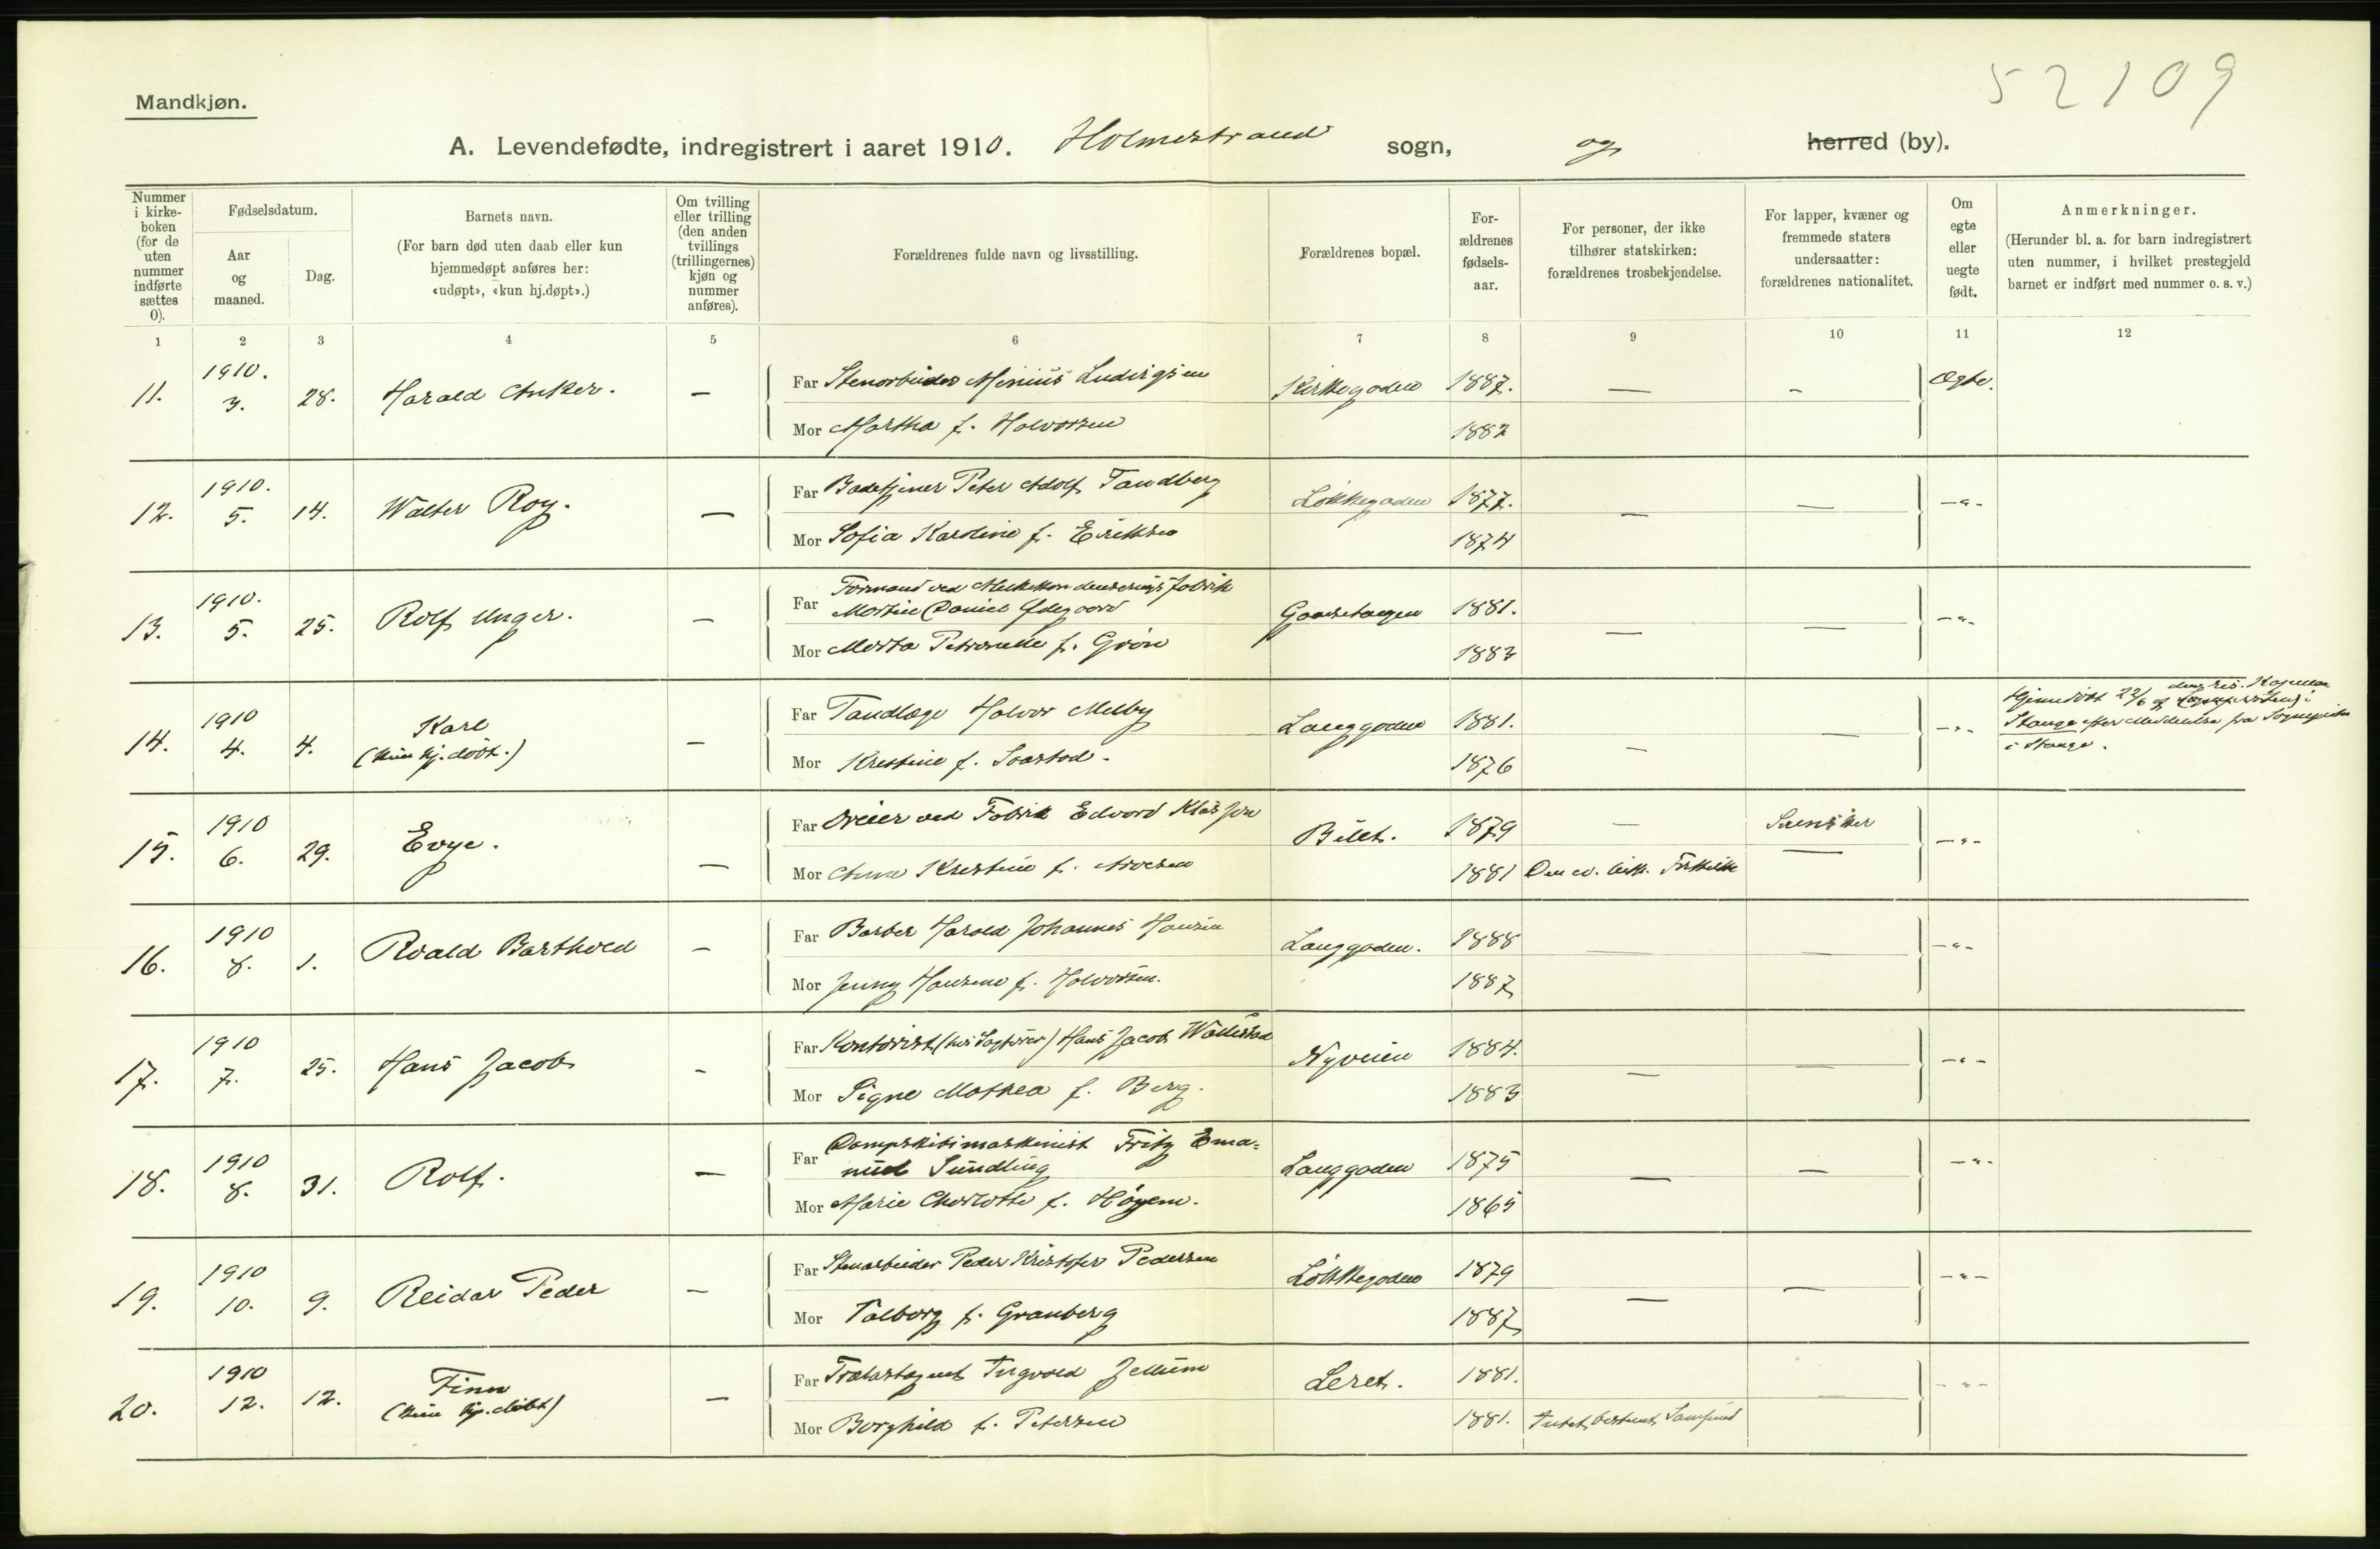 52109
Mandkjøn.
A. Levendefødte, indregistrert i aaret 1910. Holmestrand sogn, og herred (by).
Nummer i kirkeboken (for de uten nummer indførte sættes 0).
Fødselsdatum.
Aar og maaned.
Dag.
Barnets navn.
(For barn død uten daab eller kun hjemmedøpt anføres her: «udøpt», «kun hj.døpt».)
Om tvilling eller trilling (den anden tvillings (trillingernes) kjøn og nummer anføres).
Forældrenes fulde navn og livsstilling.
Forældrenes bopæl.
For-ældrenes fødsels-aar.
For personer, der ikke tilhører statskirken: forældrenes trosbekjendelse.
For lapper, kvæner og fremmede staters undersaatter: forældrenes nationalitet.
Om egte eller uegte født.
Anmerkninger.
(Herunder bl. a. for barn indregistrert uten nummer, i hvilket prestegjeld barnet er indført med nummer o. s. v.)
1 2 3 4 5 6 7 8 9 10 11 12
11. 1910. 3. 28. Harald Anker. — Far Stenarbeider Minius Ludvigsen Kirkegaden 1887. — – Ægte.
Mor Martha f. Halvorsen 1882
12. 1910. 5. 14. Walter Roy. — Far Badetjener Peter Adolf Tandberg Løkkegaden 1877. — — –"–
Mor Sofia Karoline f. Eriksen 1874
13. 1910. 5. 25. Rolf Unger. — Far Formand ved Melkekondenserings fabrik
Martin Daniel Ødegaard 1881. — — –"–
Mor Marta Petronelle f. Grøn 1883
14. 1910 4. 4. Karl (kun hj. døbt.) — Far Tandlæge Halvor Melby Langgaden 1881. — — –"–
Hjemdøbt 22/6 af res. Kapellan i
Stange efter Meddelelse fra Sognepresten
i Stange.
Mor Kristine f. Svarstad. 1876
15. 1910 6. 29. Evye. — Far Dreier ved Fabrik Edvard Klasson Bilet. 1879 — Svensker –"–
Mor Anna Kristine f. 1881 Den ev. luth. Frikirke —
16. 1910 8. 1. Roald Barthold — Far Barber Harald Johannes Hansen Langgaden. 1888 — — –"–
Mor Jenny Hansine f. Halvorsen. 1887
17. 1910 7. 25. Hans Jacob – Far Kontorist (hos Sagfører) Hans Jacob Wallestad Nyveien 1884. — — –"–
Mor Signe Mathea f. Berg. 1883
18. 1910 8. 31. Rolf. — Far Dampskibsmaskinist Fritz Ema=
nuel Sundling Langgaden 1875 — — –"–
Mor Marie Charlotte f. Høyem. 1865
19. 1910 10. 9. Reidar Peder — Far Stenarbeider Peder Kristofer Pedersen Løkkegaden 1879 — — –"–
Mor Valborg f. Granberg 1887
20. 1910 12. 12. Finn (kun hj. døbt) — Far Ingvald Jellum Leret. 1881. — –"–
Mor Borghild f. Petersen 1881. Intet bestemt Samfund